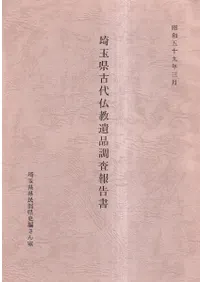 昭和五十九年三月
埼玉県古代仏教遺品調査報告書
埼玉県県民部県史編さん室